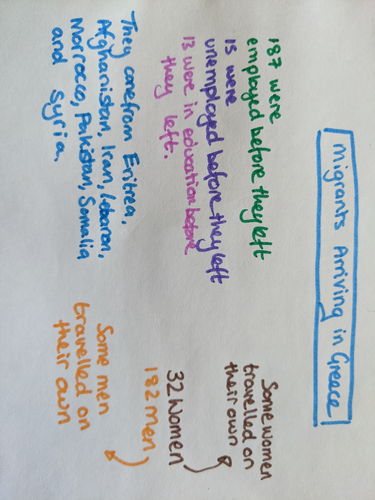 Migrants Arriving in Greece
187 were
employed before they left
15 were
unemployed before they left
13 were in education before
they left.
They came from Eritrea,
Afghanistan, Iran, Lebanon,
Morrocco, Pakistan, Somalia
and Syria.
Some women
travelled on
their own
32 women
182 men
Some men
travelled on
their own